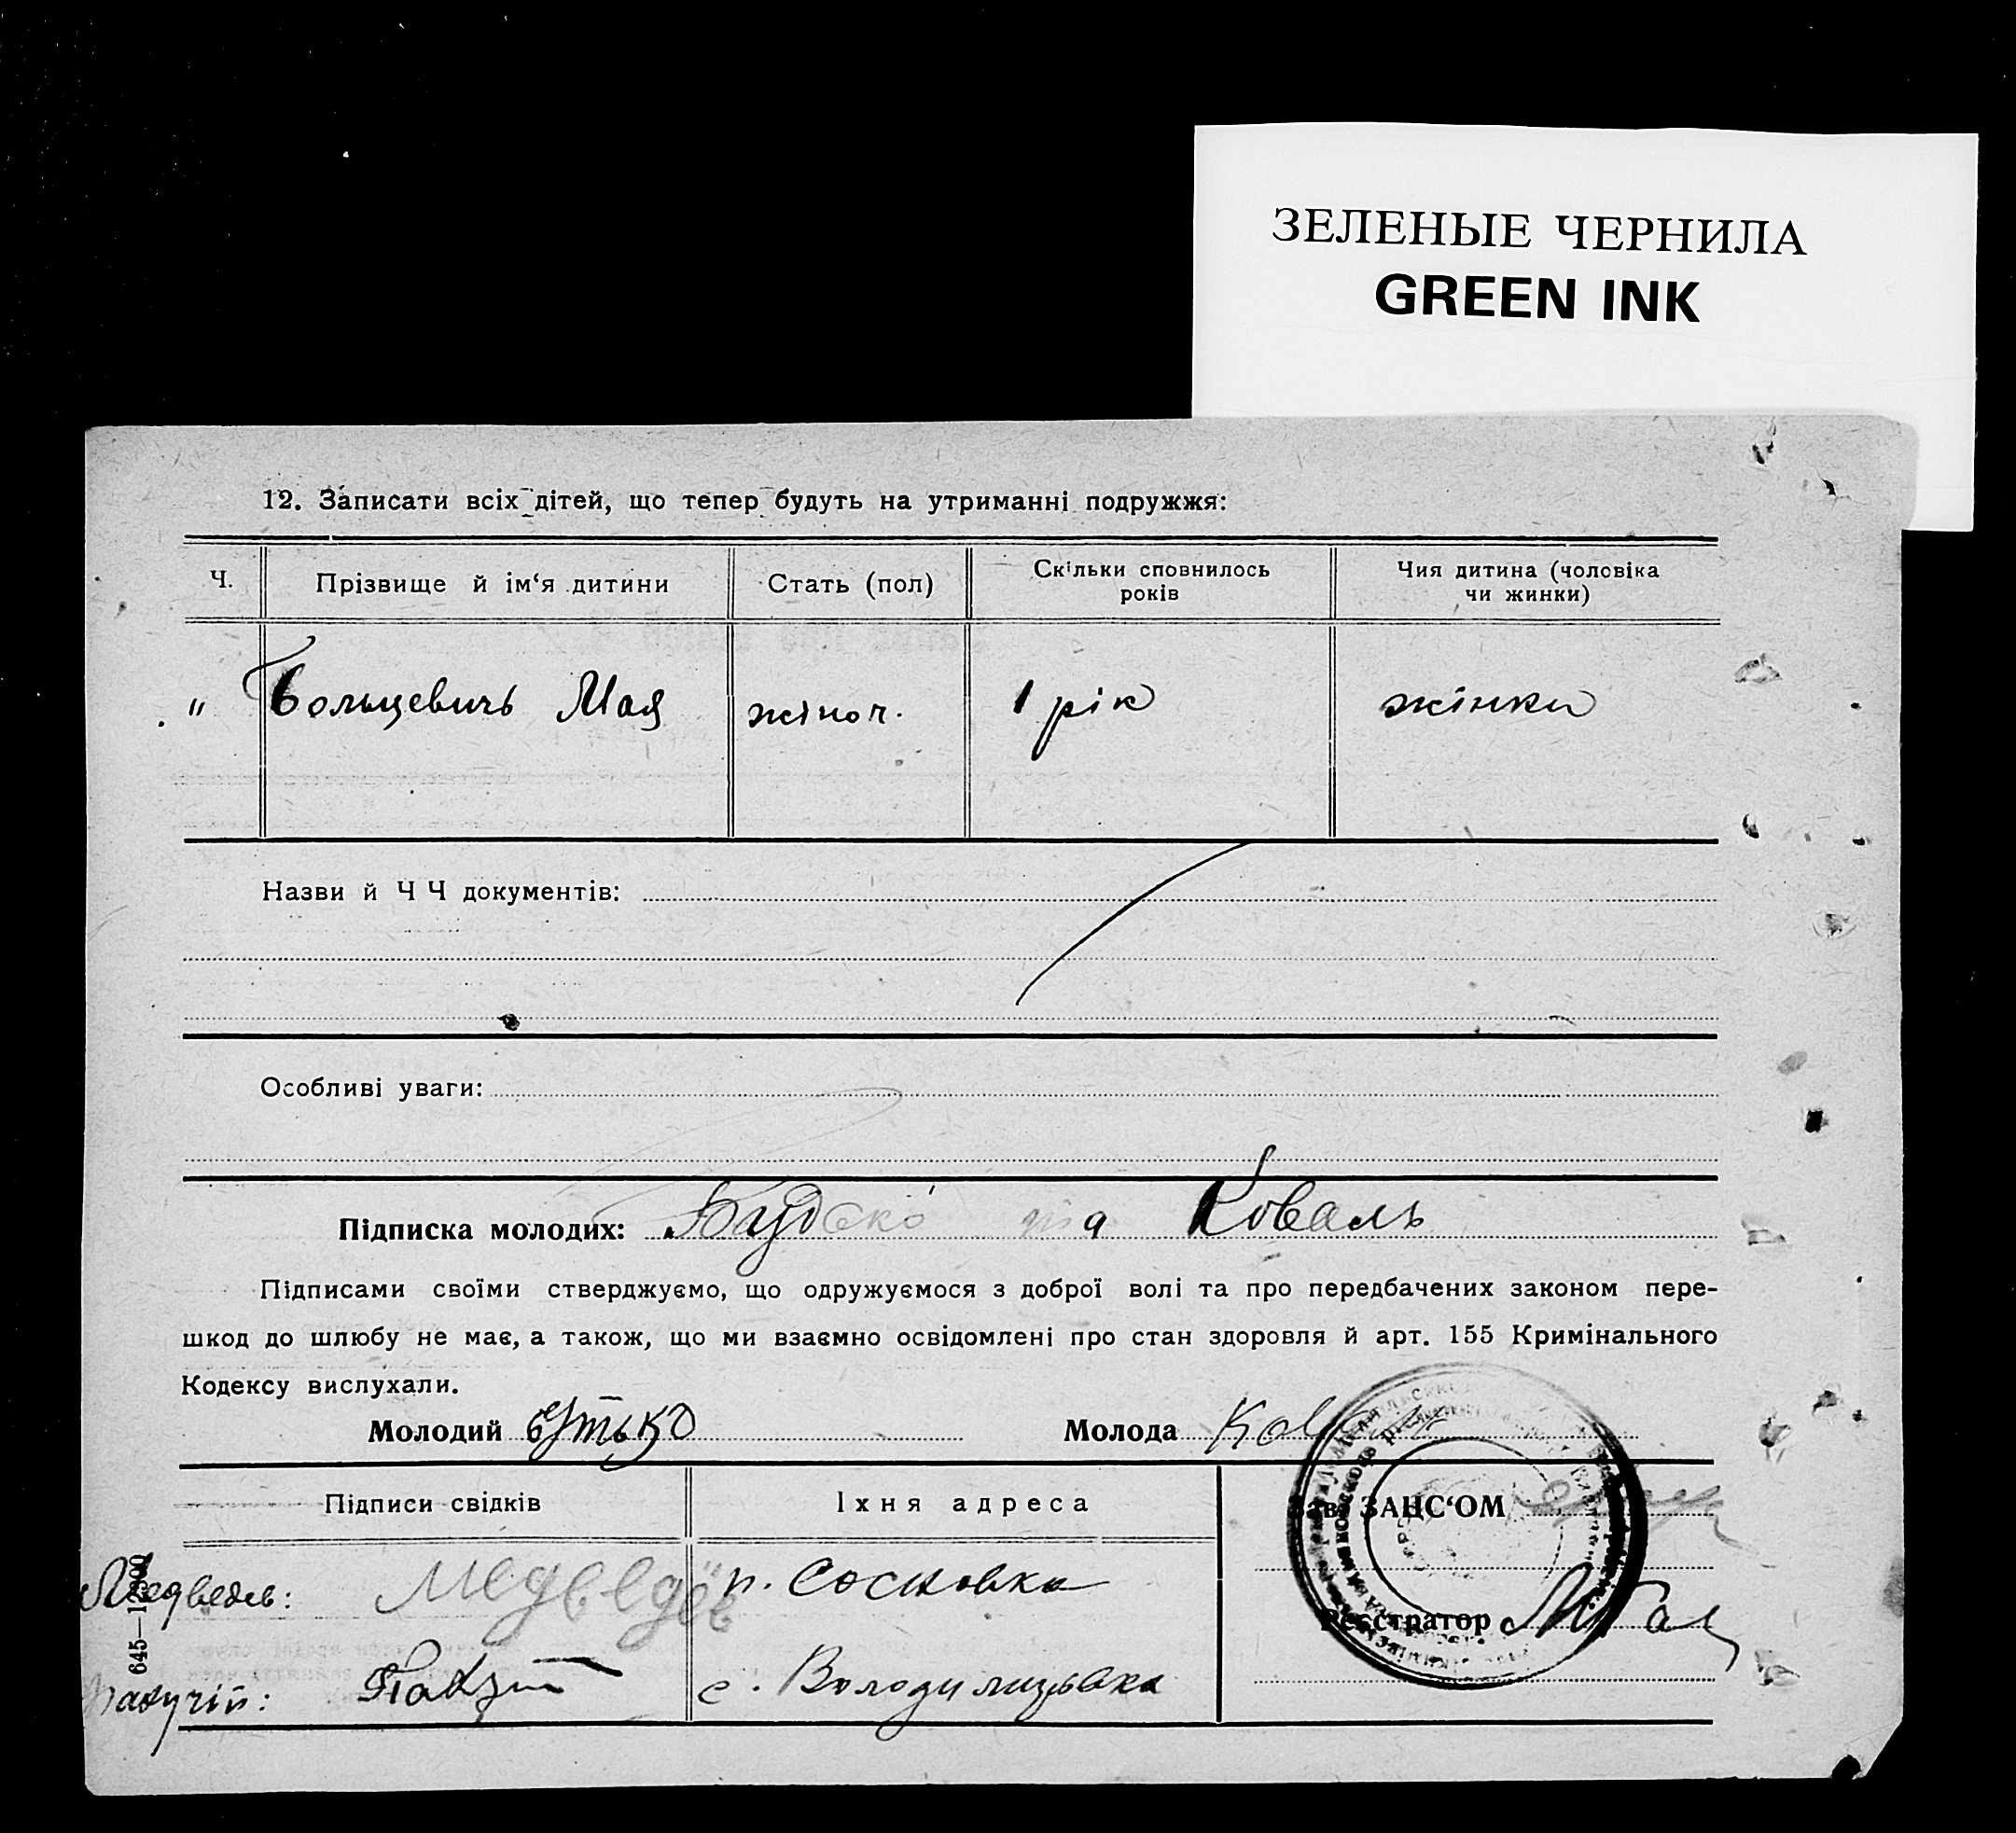 ЗЕЛЕНЫЕ ЧЕРНИЛА
GREEN INK
12. Записати всіх дітей, що тепер будуть на утриманні подружжя:
Ч. Прізвище й ім‘я дитини Стать (пол) Скільки сповнилось років Чия дитина (чоловіка чи жинки)
" Больцевичь Мая жіноч. 1 рік жінки
Назви й Ч Ч документів:
Особливі уваги:
Підписка молодих: та Коваль
Підписами своїми стверджуємо, що одружуємося з доброї волі та про передбачених законом пере-
шкод до шлюбу не має, а також, що ми взаємно освідомлені про стан здоровля й арт. 155 Кримінального
Кодексу вислухали.
Молодий Молода
Підписи свідків Їхня адреса Зав. ЗАЦС‘ОМ
Медведев: Медведев п. Сосновка
Реєстратор
с.
645—12300